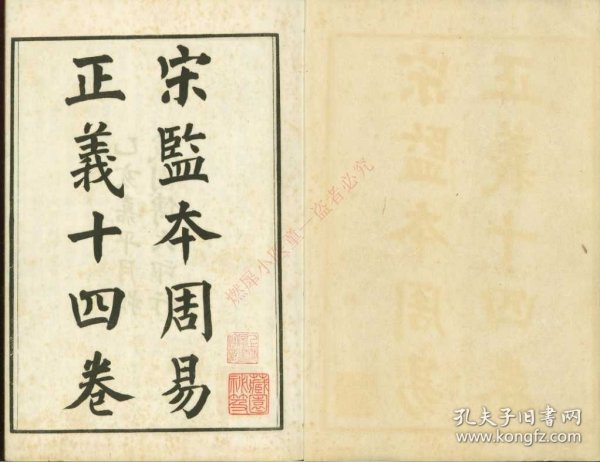 宋監本周易
正義十四卷
藏園
秘笈
燃犀小黑單一盗者必究
孔夫子旧书网
www.kongfz.com